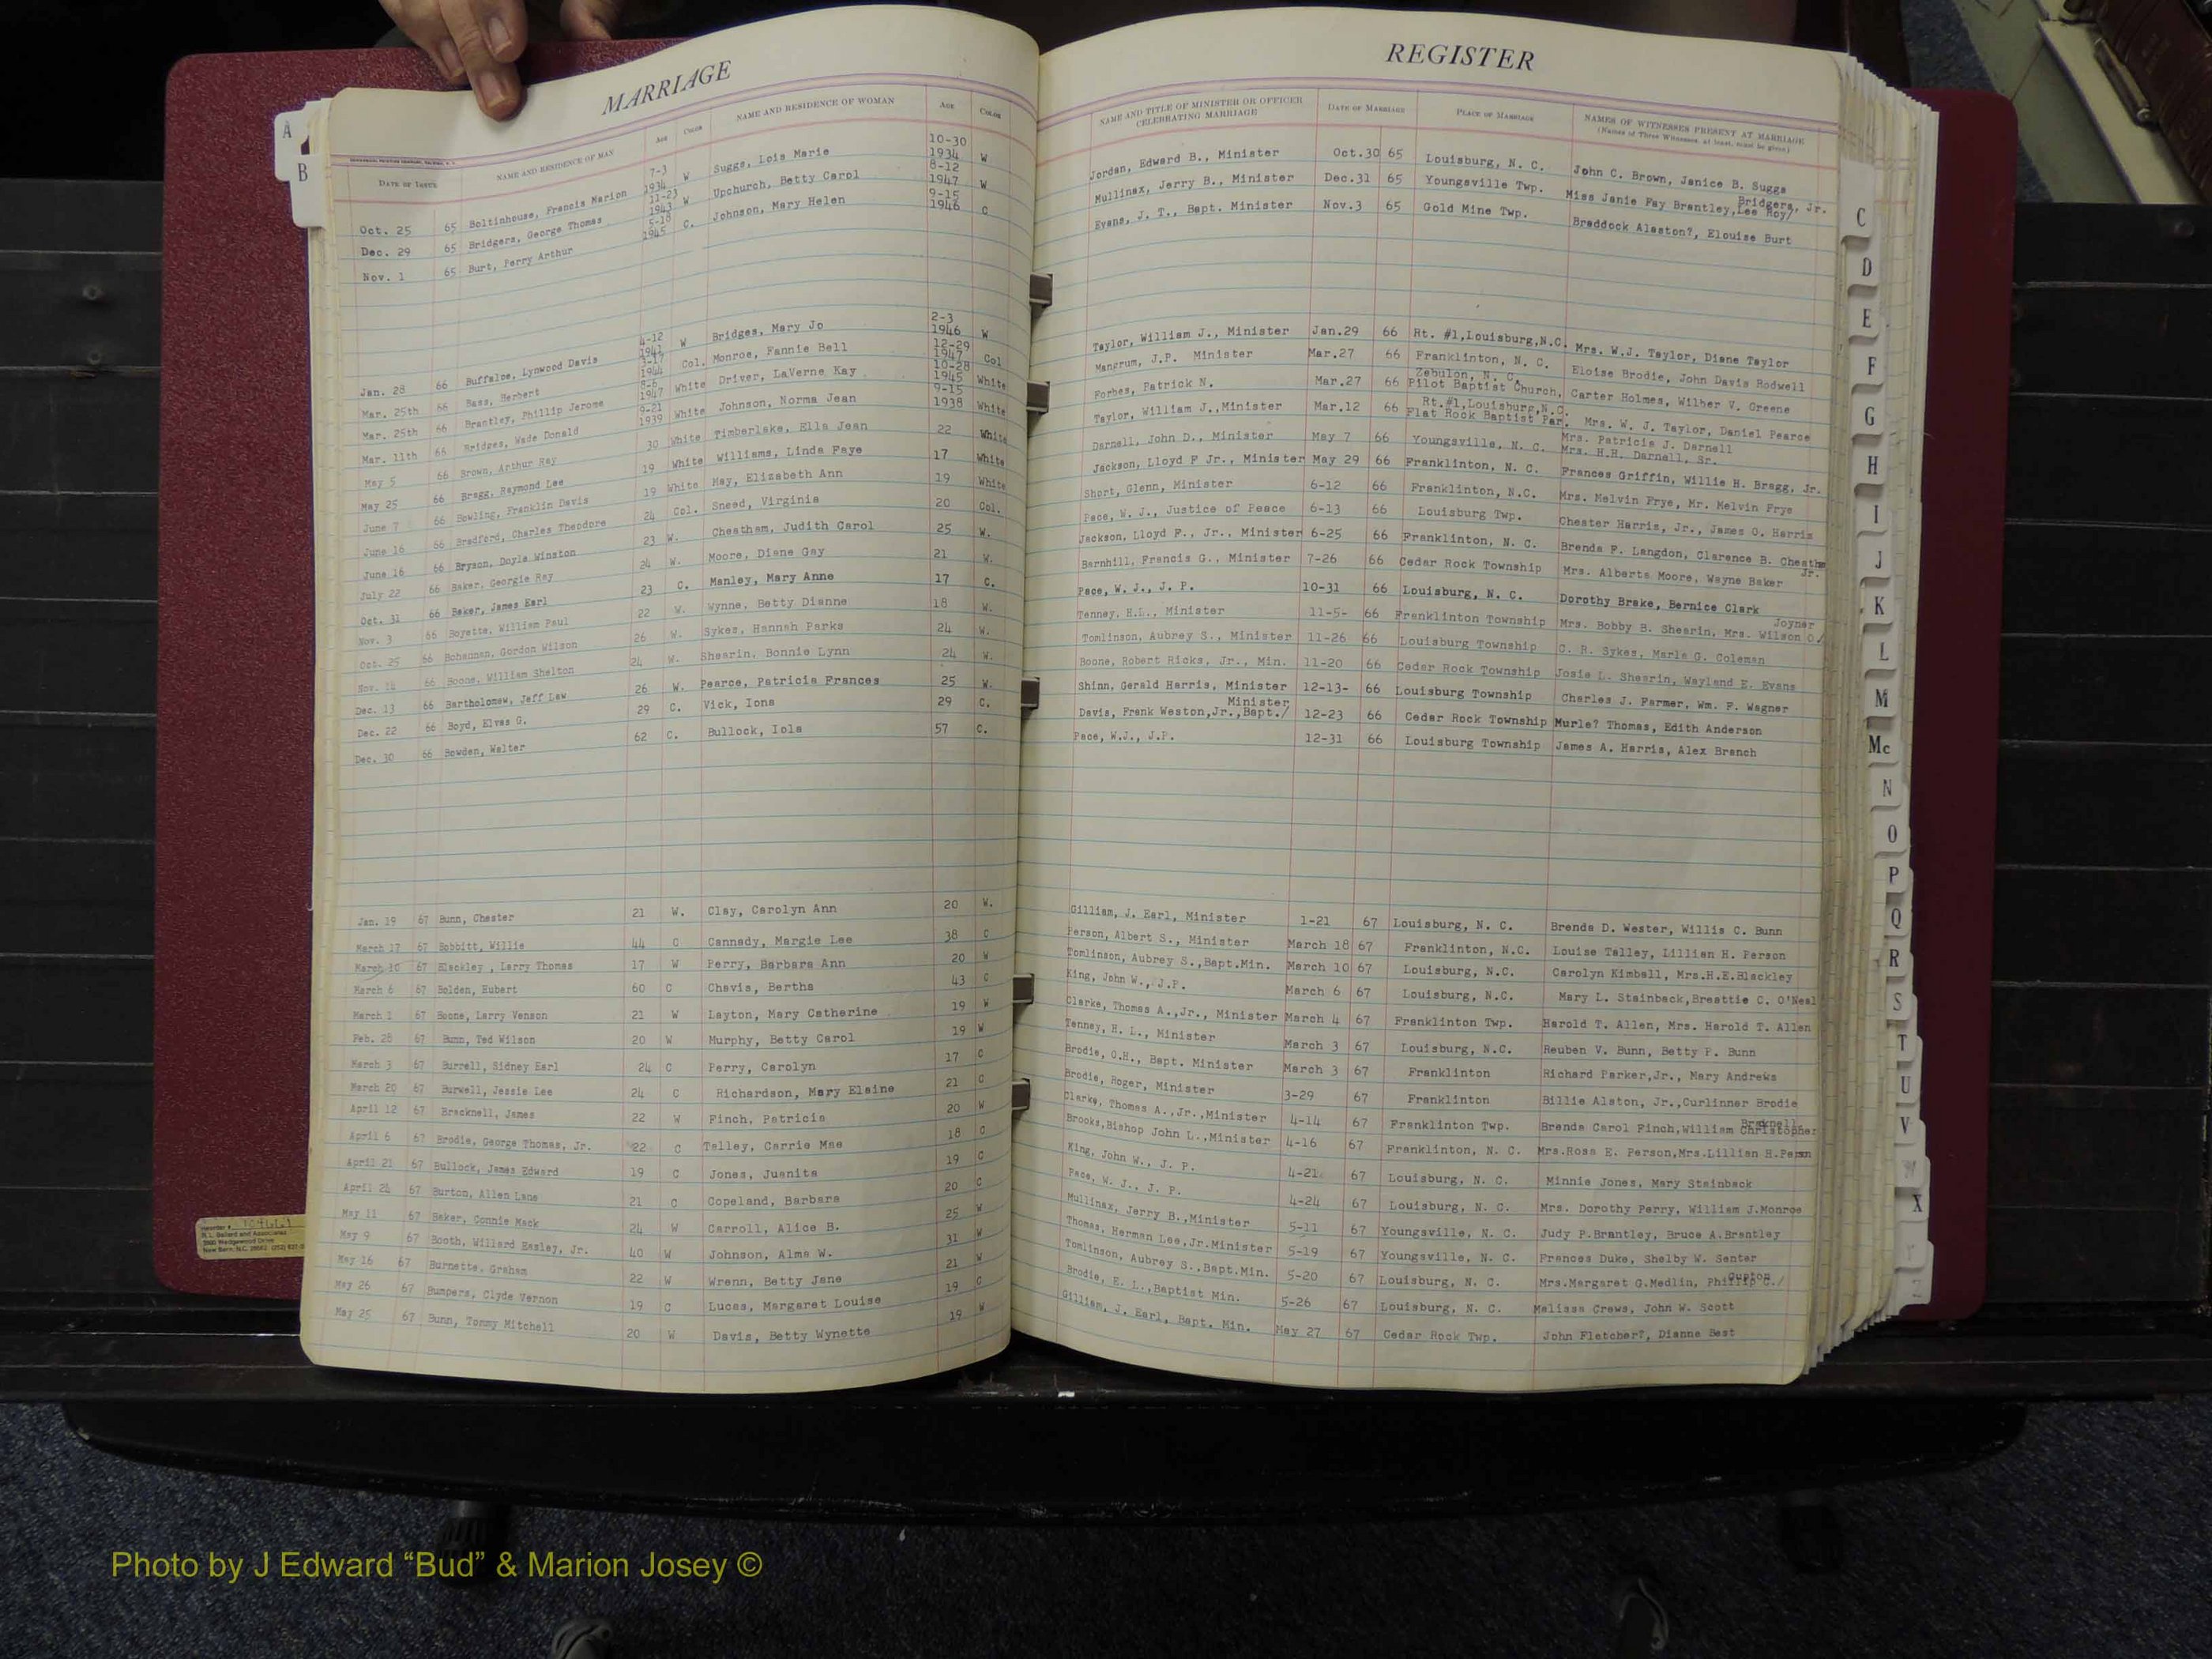 MARRIAGE
REGISTER
A
B
DATE OF ISSUE NAME AND RESIDENCE OF MAN AGE COLOR NAME AND RESIDENCE OF WOMAN AGE COLOR NAME AND TITLE OF MINISTER OR OFFICER CELEBRATING MARRIAGE DATE OF MARRIAGE PLACE OF MARRIAGE NAMES OF WITNESSES PRESENT AT MARRIAGE (Names of Three Witnesses, at least, must be given)
Oct. 25 65 Boltinhouse, Francis Marion 7-3 1934 W Suggs, Lois Marie 10-30 1934 W Jordan, Edward B., Minister Oct.30 65 Louisburg, N. C. John C. Brown, Janice B. Suggs
Dec. 29 65 Bridgers, George Thomas 11-23 1943 W Upchurch, Betty Carol 8-12 1947 W Mullinax, Jerry B., Minister Dec.31 65 Youngsville Twp. Miss Janie Fay Brantley,Lee Roy/ Bridgers, Jr.
Nov. 1 65 Burt, Perry Arthur 5-18 1945 C. Johnson, Mary Helen 9-15 1946 C Evans, J. T., Bapt. Minister Nov.3 65 Gold Mine Twp. Braddock Alaston?, Elouise Burt
Jan. 28 66 Buffaloe, Lynwood Davis 4-12 1941 W Bridges, Mary Jo 2-3 1946 W Taylor, William J., Minister Jan.29 66 Rt. #1,Louisburg,N.C. Mrs. W.J. Taylor, Diane Taylor
Mar. 25th 66 Bass, Herbert 1944 Col. Monroe, Fannie Bell 12-29 1947 Col Mangrum, J.P. Minister Mar.27 66 Franklinton, N. C. Eloise Brodie, John Davis Rodwell
Mar. 25th 66 Brantley, Phillip Jerome 8-6 1947 White Driver, LaVerne Kay 10-28 1945 White Forbes, Patrick N. Mar.27 66 Zebulon, N. C. Pilot Baptist Church, Carter Holmes, Wilber V. Greene
Mar. 11th 66 Bridges, Wade Donald 9-21 1939 White Johnson, Norma Jean 9-15 1938 White Taylor, William J.,Minister Mar.12 66 Rt.#1,Louisburg,N.C. Flat Rock Baptist Par. Mrs. W. J. Taylor, Daniel Pearce
May 5 66 Brown, Arthur Ray 30 White Timberlake, Ella Jean 22 White Darnell, John D., Minister May 7 66 Youngsville, N. C. Mrs. Patricia J. Darnell Mrs. H.H. Darnell, Sr.
May 25 66 Bragg, Raymond Lee 19 White Williams, Linda Faye 17 White Jackson, Lloyd F Jr., Minister May 29 66 Franklinton, N. C. Frances Griffin, Willie H. Bragg, Jr.
June 7 66 Bowling, Franklin Davis 19 White May, Elizabeth Ann 19 White Short, Glenn, Minister 6-12 66 Franklinton, N.C. Mrs. Melvin Frye, Mr. Melvin Frye
June 16 66 Bradford, Charles Theodore 24 Col. Sneed, Virginia 20 Col. Pace, W. J., Justice of Peace 6-13 66 Louisburg Twp. Chester Harris, Jr., James O. Harris
June 16 66 Bryson, Doyle Winston 23 W. Cheatham, Judith Carol 25 W. Jackson, Lloyd F., Jr., Minister 6-25 66 Franklinton, N. C. Brenda F. Langdon, Clarence B. Cheatham Jr.
July 22 66 Baker, Georgie Ray 24 W. Moore, Diane Gay 21 W. Barnhill, Francis G., Minister 7-26 66 Cedar Rock Township Mrs. Alberta Moore, Wayne Baker
Oct. 31 66 Baker, James Earl 23 C. Manley, Mary Anne 17 C. Pace, W. J., J. P. 10-31 66 Louisburg, N. C. Dorothy Brake, Bernice Clark
Nov. 3 66 Boyette, William Paul 22 W. Wynne, Betty Dianne 18 W. Tenney, H.L., Minister 11-5- 66 Franklinton Township Mrs. Bobby B. Shearin, Mrs. Wilson O./ Joyner
Oct. 25 66 Bohannan, Gordon Wilson 26 W. Sykes, Hannah Parks 24 W. Tomlinson, Aubrey S., Minister 11-26 66 Louisburg Township C. R. Sykes, Marla G. Coleman
Nov. 66 Boone, William Shelton 24 W. Shearin, Bonnie Lynn 24 W. Boone, Robert Ricks, Jr., Min. 11-20 66 Cedar Rock Township Josie L. Shearin, Wayland E. Evans
Dec. 13 66 Bartholomew, Jeff Law 26 W. Pearce, Patricia Frances 25 W. Shinn, Gerald Harris, Minister 12-13- 66 Louisburg Township Charles J. Farmer, Wm. F. Wagner
Dec. 22 66 Boyd, Elves G. 29 C. Vick, Iona 29 C. Davis, Frank Weston,Jr.,Bapt./ Minister 12-23 66 Cedar Rock Township Murle? Thomas, Edith Anderson
Dec. 30 66 Bowden, Walter 62 C. Bullock, Iola 57 C. Pace, W.J., J.P. 12-31 66 Louisburg Township James A. Harris, Alex Branch
Jan. 19 67 Bunn, Chester 21 W. Clay, Carolyn Ann 20 W. Gilliam, J. Earl, Minister 1-21 67 Louisburg, N. C. Brenda D. Wester, Willis C. Bunn
March 17 67 Bobbitt, Willie 44 C Cannady, Margie Lee 38 C Person, Albert S., Minister March 18 67 Franklinton, N.C. Louise Talley, Lillian H. Person
March 10 67 Blackley , Larry Thomas 17 W Perry, Barbara Ann 20 W Tomlinson, Aubrey S.,Bapt.Min. March 10 67 Louisburg, N.C. Carolyn Kimball, Mrs.H.E.Blackley
March 6 67 Bolden, Hubert 60 C Chavis, Bertha 43 C King, John W., J.P. March 6 67 Louisburg, N.C. Mary L. Stainback,Breattie C. O'Neal
March 1 67 Boone, Larry Venson 21 W Layton, Mary Catherine 19 W Clarke, Thomas A.,Jr., Minister March 4 67 Franklinton Twp. Harold T. Allen, Mrs. Harold T. Allen
Feb. 28 67 Bunn, Ted Wilson 20 W Murphy, Betty Carol 19 W Tenney, H. L., Minister March 3 67 Louisburg, N.C. Reuben V. Bunn, Betty P. Bunn
March 3 67 Burrell, Sidney Earl 24 C Perry, Carolyn 17 C Brodie, O.H., Bapt. Minister March 3 67 Franklinton Richard Parker,Jr., Mary Andrews
March 20 67 Burwell, Jessie Lee 24 C Richardson, Mary Elaine 21 C Brodie, Roger, Minister 3-29 67 Franklinton Billie Alston, Jr.,Curlinner Brodie
April 12 67 Bracknell, James 22 W Finch, Patricia 20 W Clarke, Thomas A.,Jr.,Minister 4-14 67 Franklinton Twp. Brenda Carol Finch,William Christopher Bracknell
April 6 67 Brodie, George Thomas, Jr. 22 C Talley, Carrie Mae 18 C Brooks,Bishop John L.,Minister 4-16 67 Franklinton, N. C. Mrs.Rosa E. Person,Mrs.Lillian H.Person
April 21 67 Bullock, James Edward 19 C Jones, Juanita 19 C King, John W., J. P. 4-21 67 Louisburg, N. C. Minnie Jones, Mary Stainback
April 24 67 Burton, Allen Lane 21 C Copeland, Barbara 20 C Pace, W. J., J. P. 4-24 67 Louisburg, N. C. Mrs. Dorothy Perry, William J.Monroe
May 11 67 Baker, Connie Mack 24 W Carroll, Alice B. 25 W Mullinax, Jerry B.,Minister 5-11 67 Youngsville, N. C. Judy P.Brantley, Bruce A.Brantley
May 9 67 Booth, Willard Easley, Jr. 40 W Johnson, Alma W. 31 W Thomas, Herman Lee,Jr.Minister 5-19 67 Youngsville, N. C. Frances Duke, Shelby W. Senter
May 16 67 Burnette, Graham 22 W Wrenn, Betty Jane 21 W Tomlinson, Aubrey S.,Bapt.Min. 5-20 67 Louisburg, N. C. Mrs.Margaret G.Medlin, Phillip C./ Gupton
May 26 67 Bumpers, Clyde Vernon 19 C Lucas, Margaret Louise 19 C Brodie, E. L.,Baptist Min. 5-26 67 Louisburg, N. C. Melissa Crews, John W. Scott
May 25 67 Bunn, Tommy Mitchell 20 W Davis, Betty Wynette 19 W Gilliam, J. Earl, Bapt. Min. May 27 67 Cedar Rock Twp. John Fletcher?, Dianne Best
C
D
E
F
G
H
I
J
K
L
M
Mc
N
O
P
Q
R
S
T
U
V
W
X
Y
Z
Photo by J Edward “Bud” & Marion Josey ©